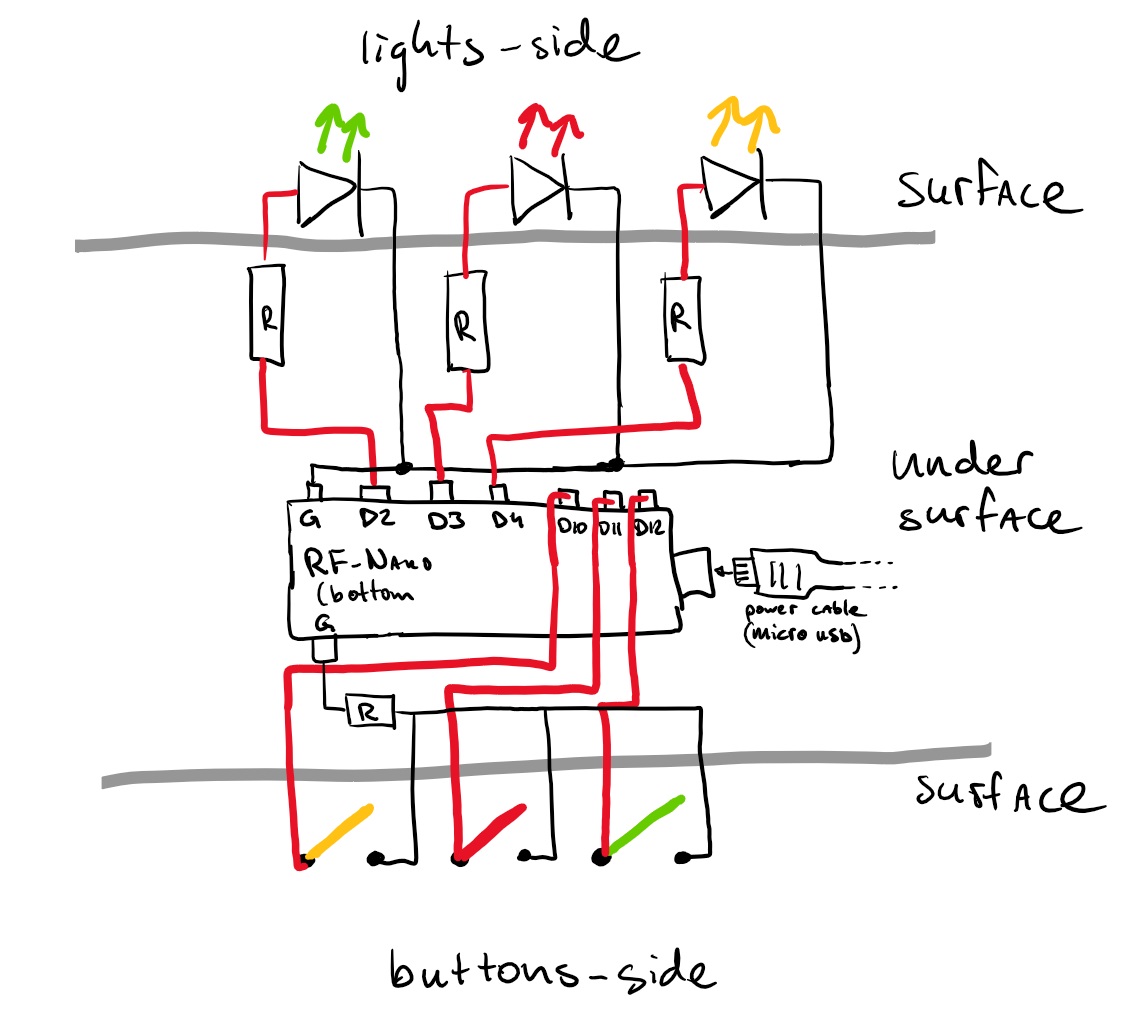 lights-side
surface
R
R
R
under
surface
G D2 D3 D4 D10 D11 D12
RF-NANO
(bottom
G
power cable
(micro usb)
R
surface
buttons-side